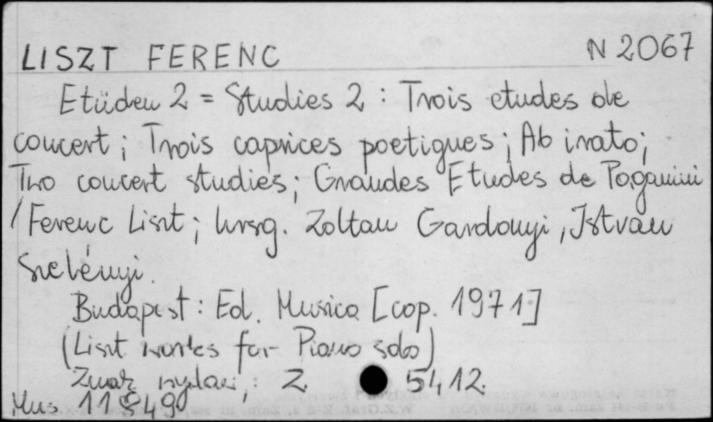 LISZT FERENC N 2067
Etüden 2 = Studies 2 : Trois etudes de
concert ; Trois caprices poetiques ; Ab irato ;
Two concert studies ; Grandes Etudes de Paganini
/ Ferenc Liszt ; hrsg. Zoltan Gardonyi , István
Szelényi.
Budapest : Ed. Musica [cop. 1971]
(Liszt works for Piano solo)
Znak wydaw. : Z 5412
Mus 11849